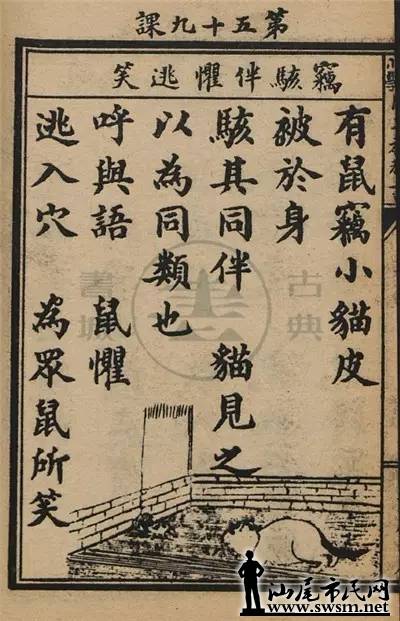 第五十九課
竊駭伴懼逃笑
有鼠竊小貓皮
被於身
駭其同伴 貓見之
以為同類也
呼與語 鼠懼
逃入穴 為眾鼠所笑
古典書城
汕尾市民网
www.swsm.net